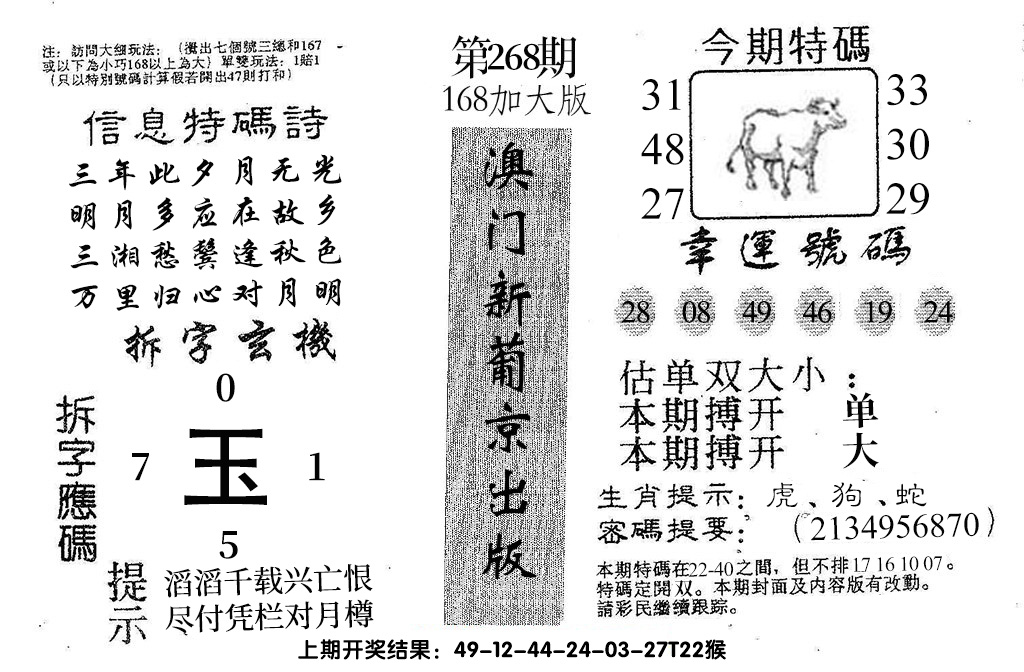 注：訪問大细玩法：（攪出七個號三總和167
或以下為小巧168以上為大）單雙玩法：1賠1
（只以特別號碼計算假若開出47則打和）
信息特碼詩
三年此夕月无光
明月多应在故乡
三湘愁鬓逢秋色
万里归心对月明
拆字玄機
拆字應碼
0
7 玉 1
5
提示
滔滔千载兴亡恨
尽付凭栏对月樽
第268期
168加大版
澳门新葡京出版
今期特碼
31 33
48 30
27 29
幸運號碼
28 08 49 46 19 24
估单双大小：
本期搏开 单
本期搏开 大
生肖提示：虎、狗、蛇
密碼提要：（2134956870）
本期特碼在22-40之間，但不排17 16 10 07。
特碼定開双。本期封面及内容版有改動。
請彩民繼續跟踪。
上期开奖结果：49-12-44-24-03-27T22猴